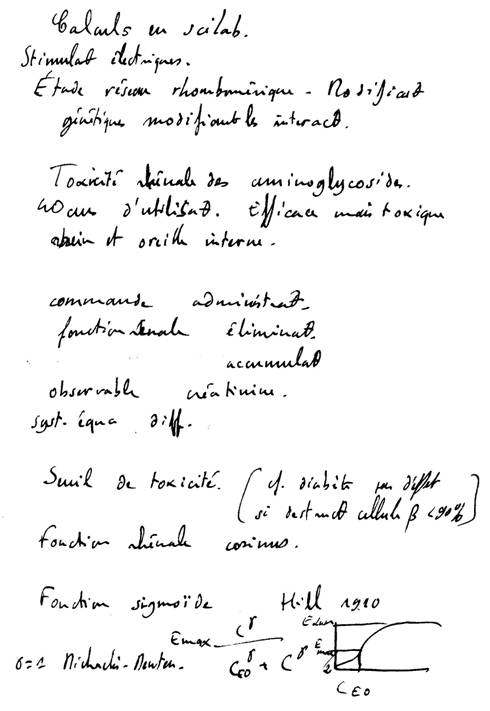 Calculs en scilab.
Stimulat électriques.
Étude réseau rhombomérique - Modificat
génétiques modifiant les interact.
Toxicité rhénale des aminoglycosides.
40 ans d'utilisat. Efficace mais toxique
rhein et oreille interne.
commande administrat.
fonction rénale éliminat.
accumulat
observable créatinine.
syst. équa diff.
Seuil de toxicité. (cf. diabète pas d'effet
si destruct cellule β < 90%)
Fonction rhénale cosinus.
Fonction sigmoïde Hill 1910
Emax C^γ / C_E0^γ + C^γ
γ=1 Michaelis-Menten.
Emax
Emax
2
C E0